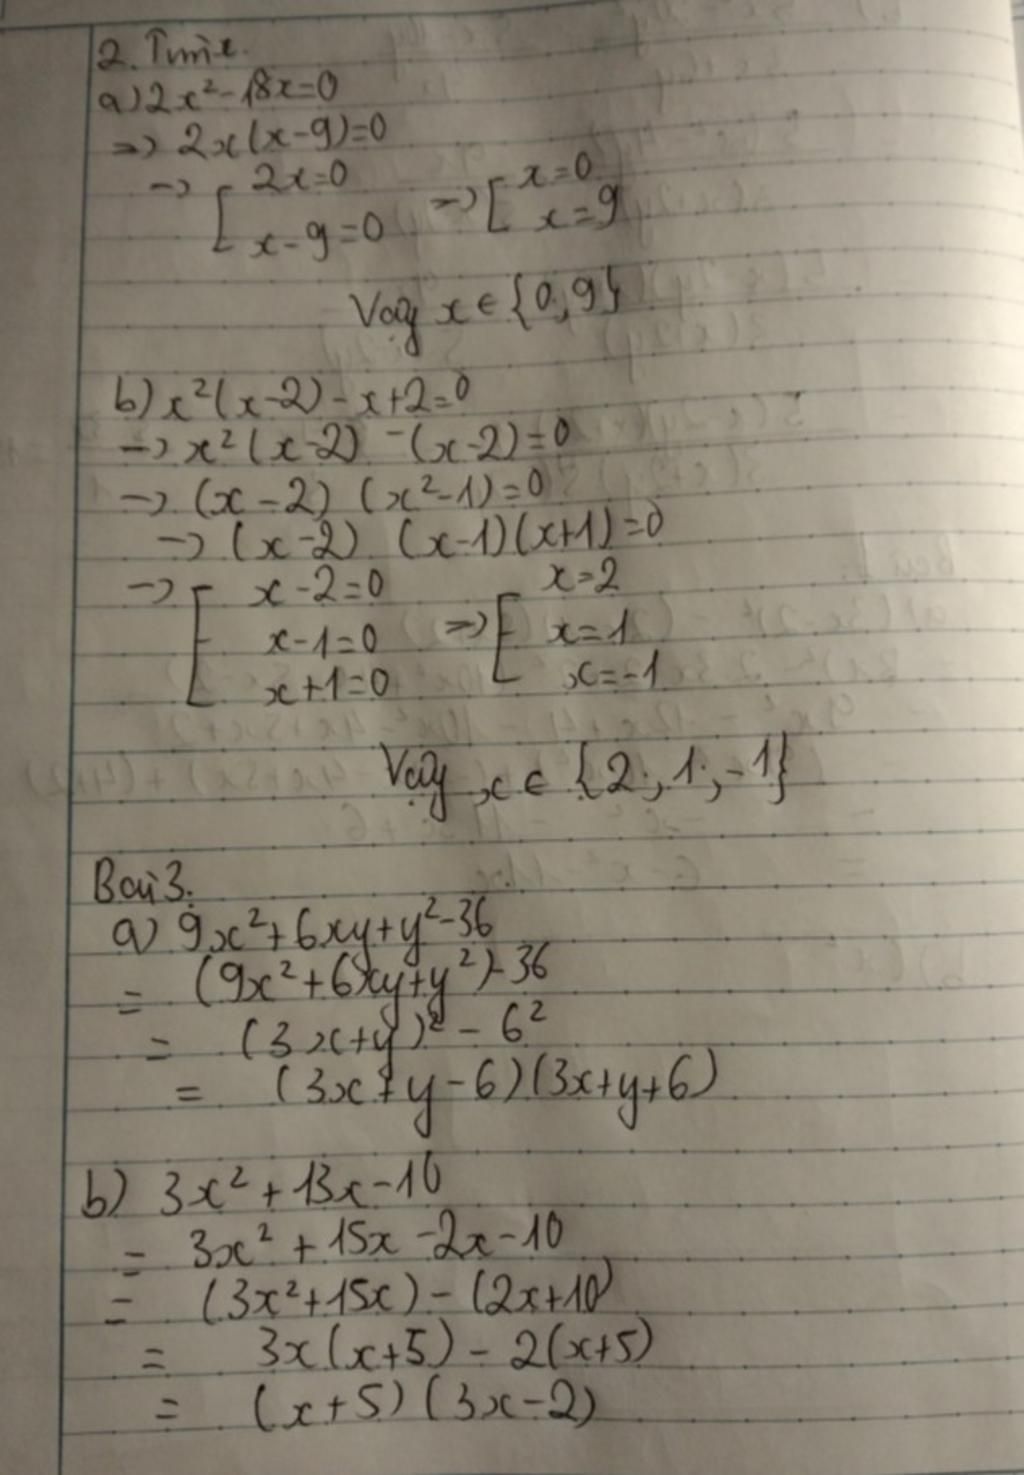 2. Tìm x.
a) 2x² - 18x = 0
=> 2x(x-9)=0
-> [ 2x=0 -> [ x=0
x-9=0 x=9
Vậy x ∈ {0; 9}
b) x²(x-2) - x+2=0
-> x²(x-2) - (x-2)=0
-> (x-2) (x²-1)=0
-> (x-2) (x-1)(x+1)=0
-> [ x-2=0 => [ x=2
x-1=0 x=1
x+1=0 x=-1
Vậy x ∈ {2; 1; -1}
Bài 3.
a) 9x²+6xy+y²-36
= (9x²+6xy+y²)-36
= (3x+y)² - 6²
= (3x+y-6)(3x+y+6)
b) 3x² + 13x - 10
= 3x² + 15x - 2x - 10
= (3x²+15x) - (2x+10)
= 3x(x+5) - 2(x+5)
= (x+5) (3x-2)